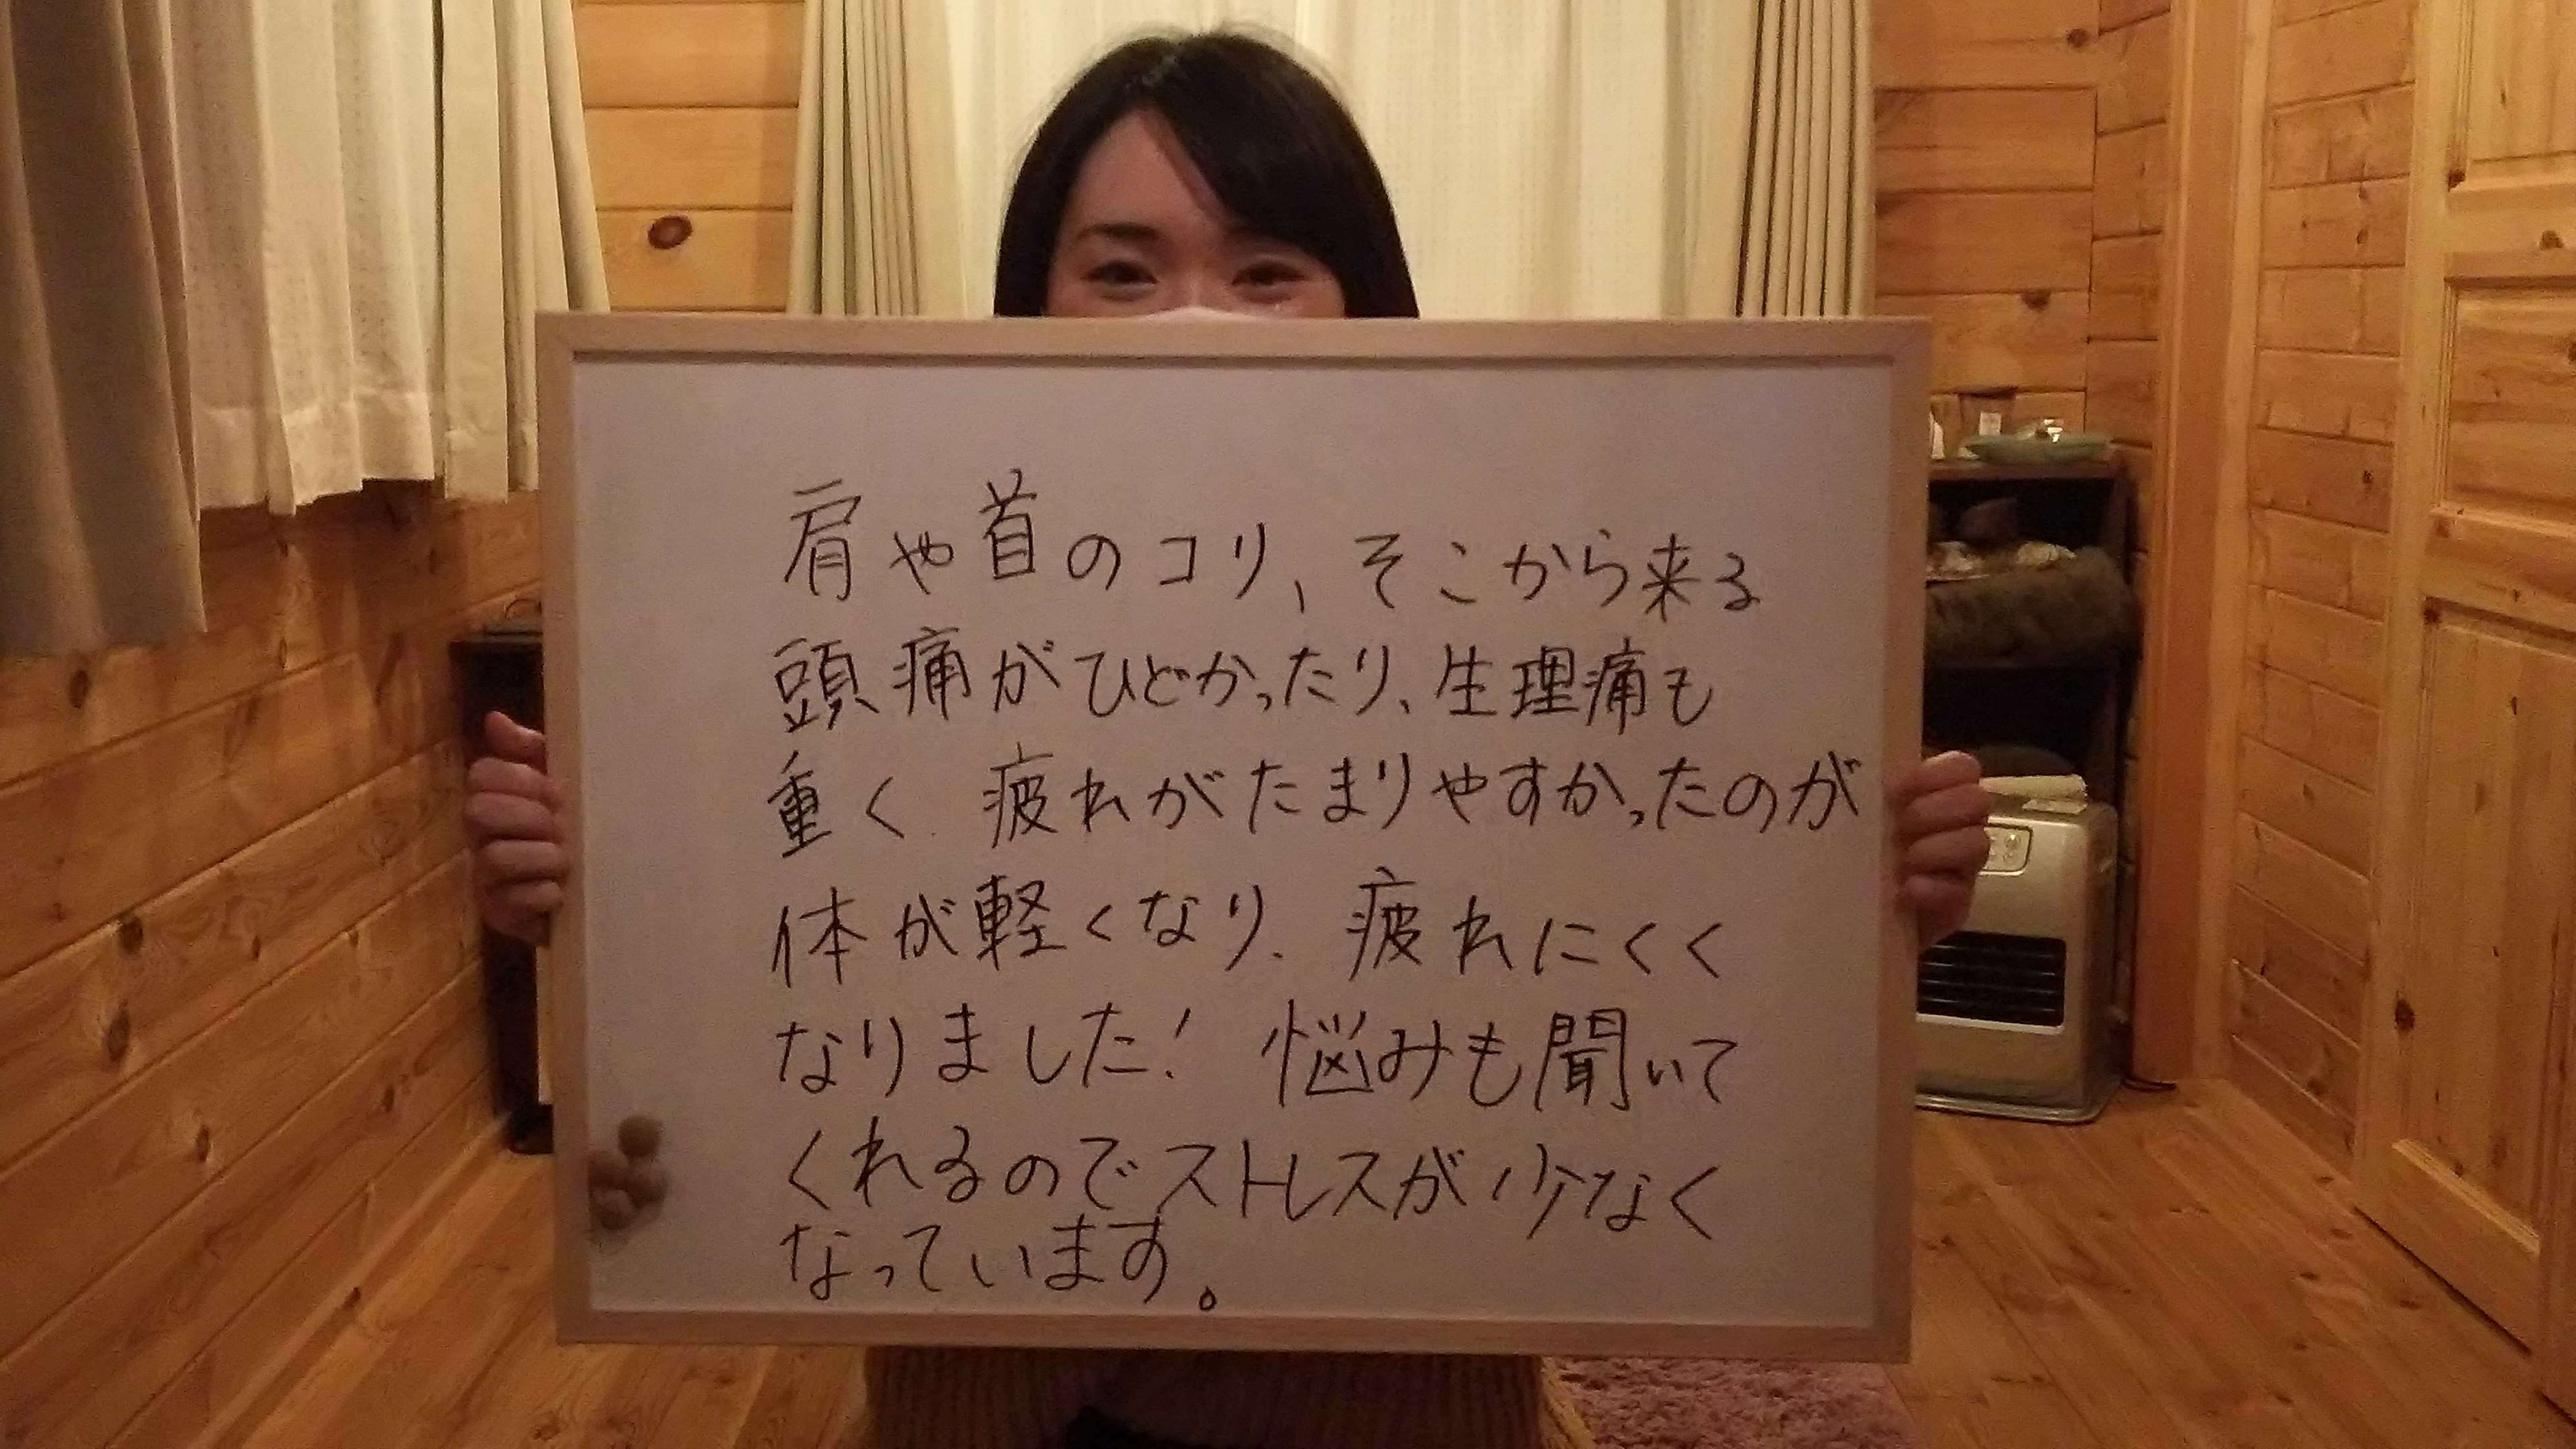 肩や首のコリ、そこから来る
頭痛がひどかったり、生理痛も
重く、疲れがたまりやすかったのが
体が軽くなり、疲れにくく
なりました！ 悩みも聞いて
くれるのでストレスが少なく
なっています。